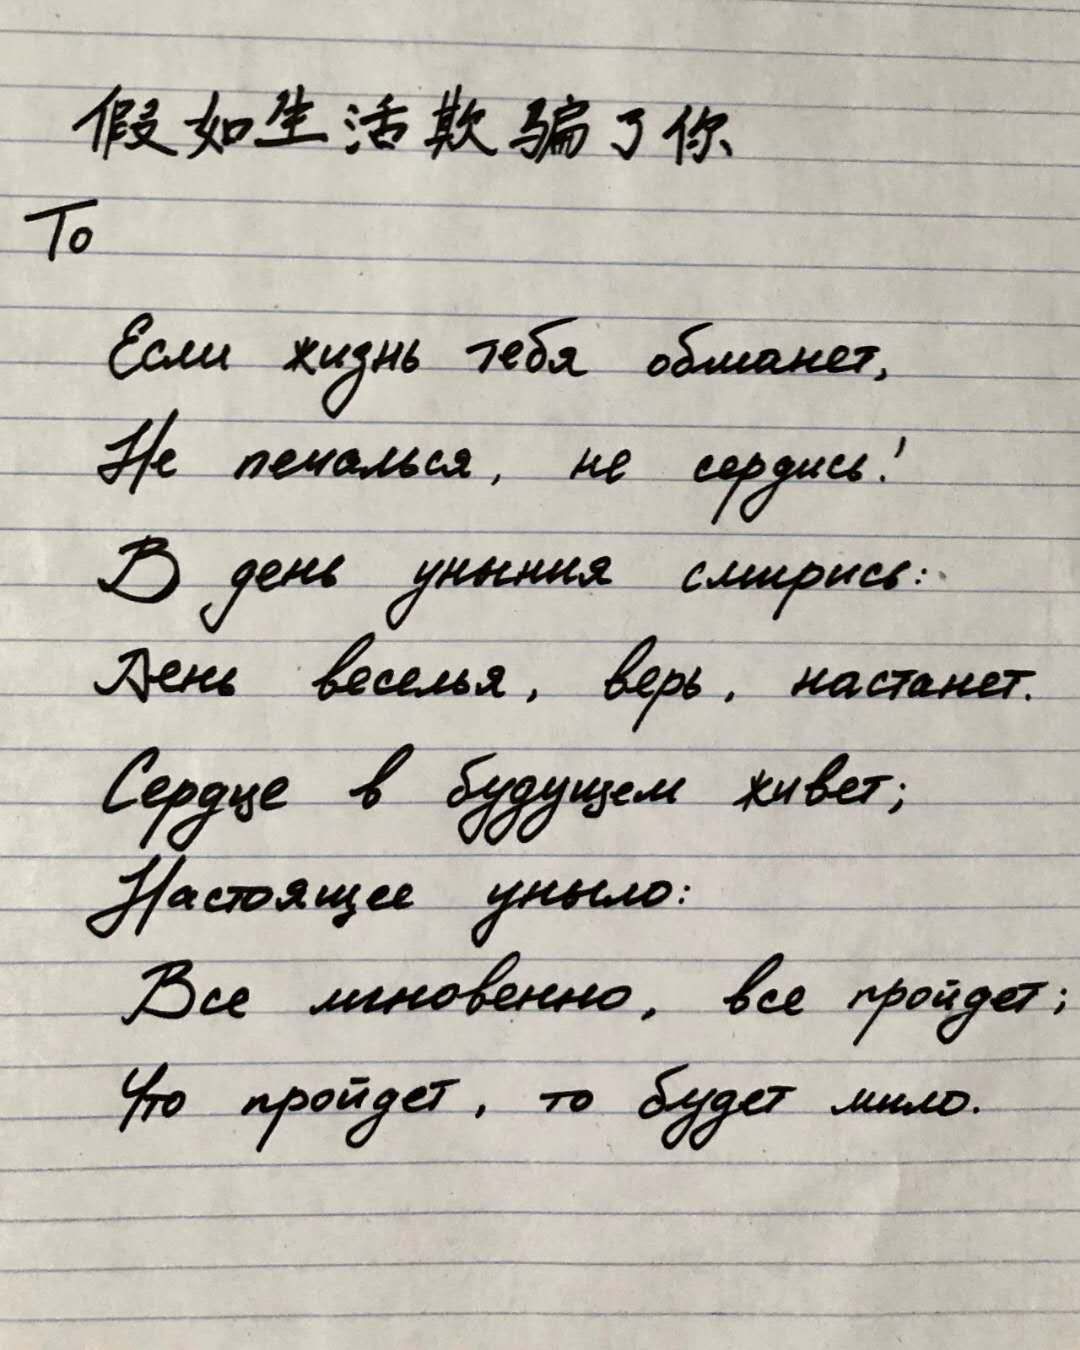 假如生活欺骗了你
To
Если жизнь тебя обманет,
Не печалься, не сердись!
В день уныния смирись:
День веселья, верь, настанет.
Сердце в будущем живет;
Настоящее уныло:
Все мгновенно, все пройдет;
Что пройдет, то будет мило.